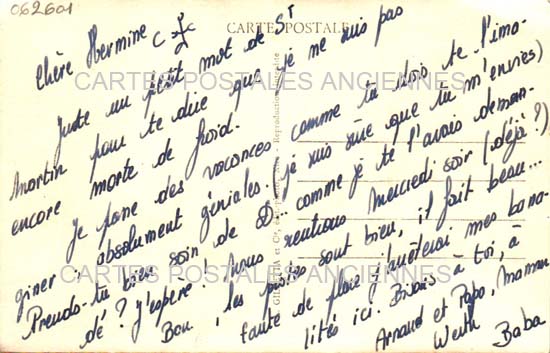 062601
CARTE POSTALE
Chère Hermine
Juste un petit mot de St
Martin pour te dire que je ne suis pas
encore morte de froid.
Je passe des vacances comme tu dois te l'ima-
giner absolument géniales! je suis sûre que tu m'envies)
Prends-tu bien soin de D... comme je te l'avais deman-
dé? J'espère! Nous rentrons Mercredi soir (déjà?)
Bon, les pistes sont bien, il fait beau...
faute de place j'arrêterai mes bana-
lités ici. Bisous à toi, à
Arnaud et Papo, Maman
Baba
CARTES POSTALES ANCIENNES
CARTES POSTALES ANCIENNES